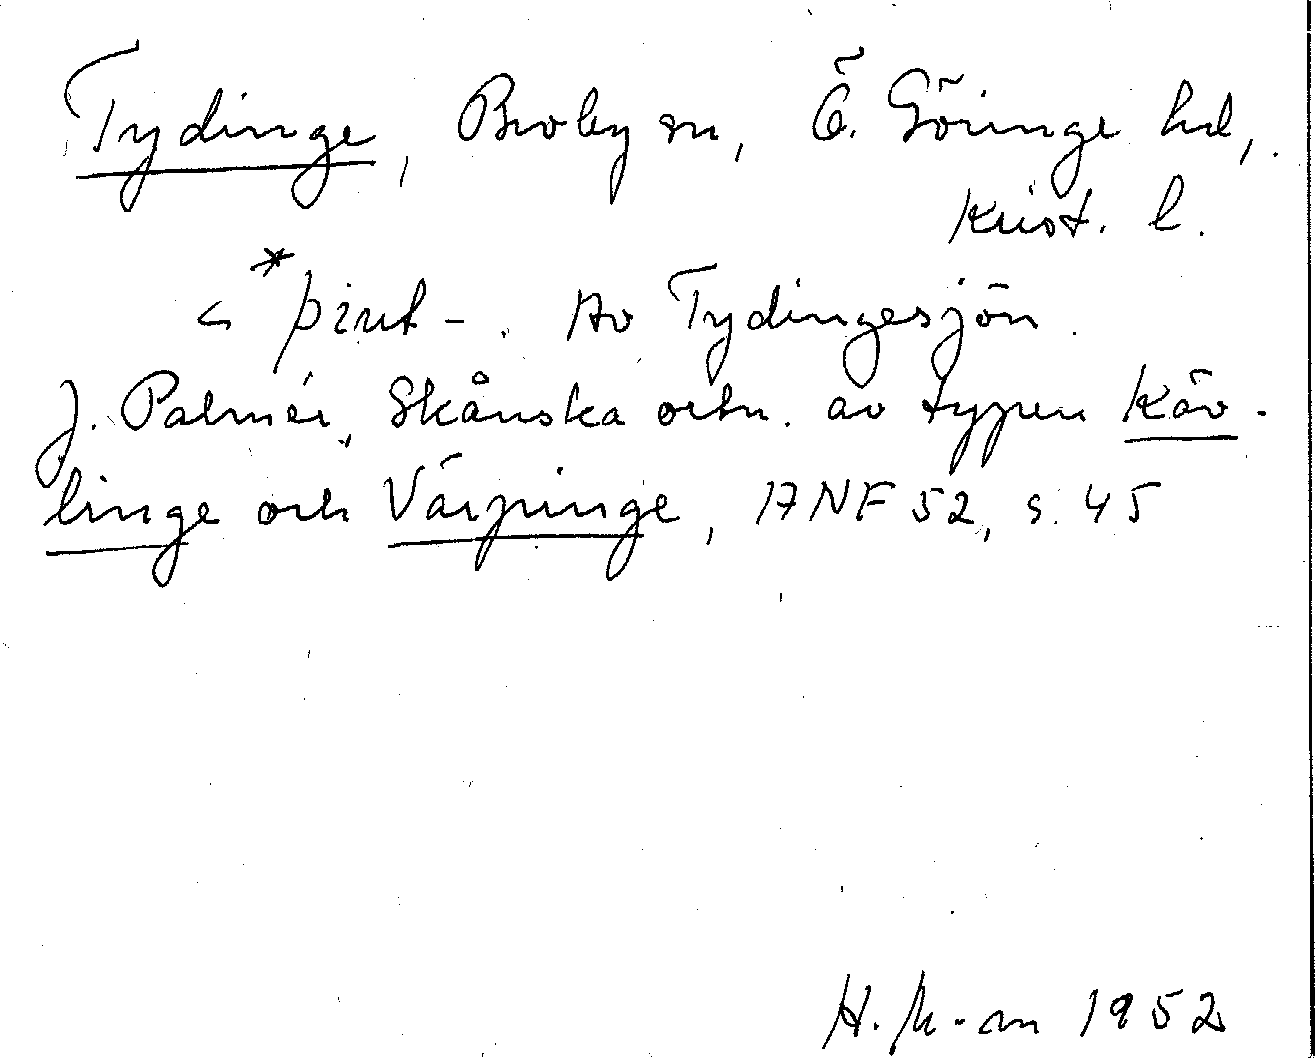 Tydinge, Broby sn, Ö. Göinge hd,
Krist. l.
< *þiut-. Av Tydingesjön.
J. Palmér, Skånska ortn. av typen Käv-
linge och Värpinge, i ANF 52, s. 45
1952